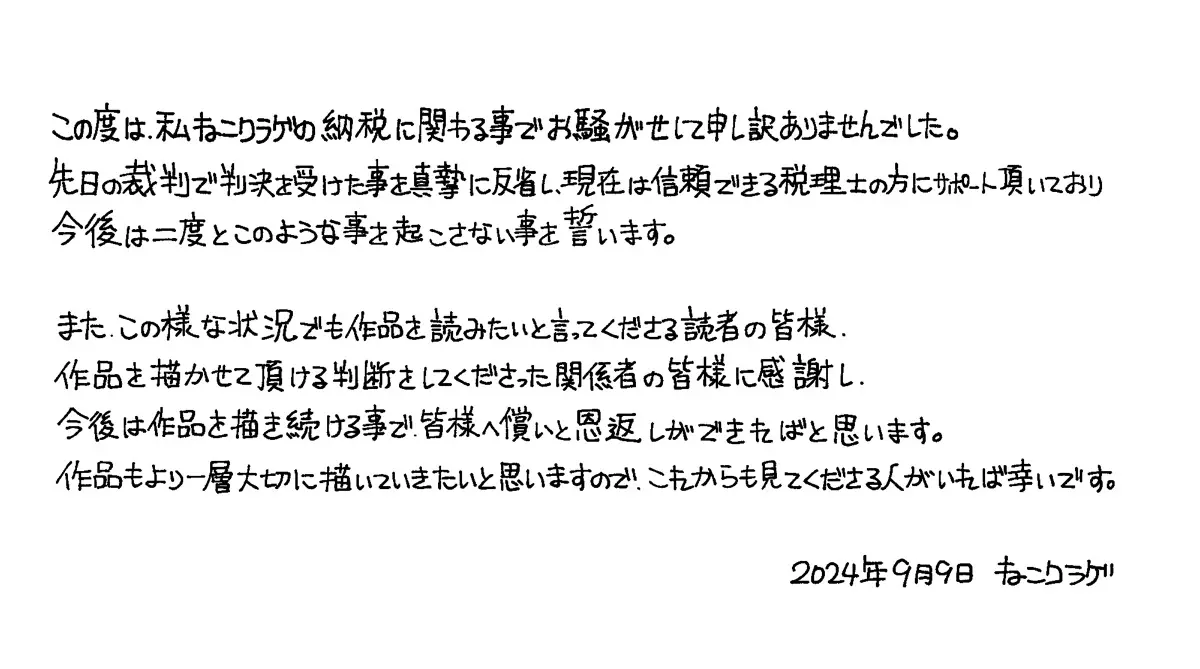 この度は、私ねこクラゲの納税に関わる事でお騒がせして申し訳ありませんでした。
先日の裁判で判決を受けた事を真摯に反省し、現在は信頼できる税理士の方にサポート頂いており
今後は二度とこのような事を起こさない事を誓います。
また、この様な状況でも作品を読みたいと言ってくださる読者の皆様、
作品を描かせて頂ける判断をしてくださった関係者の皆様に感謝し、
今後は作品を描き続ける事で、皆様へ償いと恩返しができればと思います。
作品もより一層大切に描いていきたいと思いますので、これからも見てくださる人がいれば幸いです。
2024年9月9日 ねこクラゲ